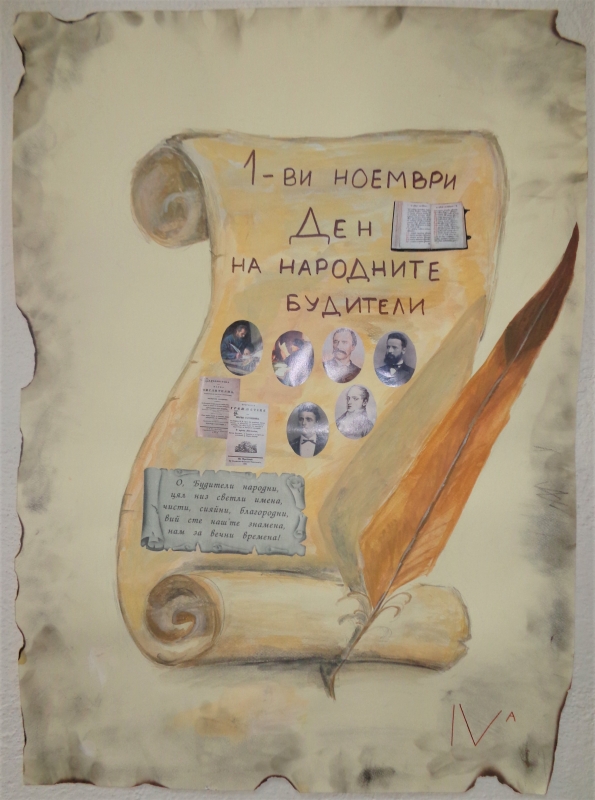 1-ВИ НОЕМВРИ
ДЕН
НА НАРОДНИТЕ
БУДИТЕЛИ
О, Будители народни,
цял низ светли имена,
чисти, сияйни, благородни,
вий сте наш'те знамена,
нам за вечни времена!
IV А